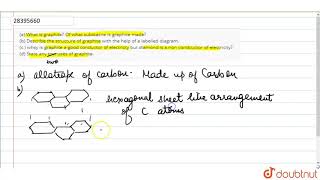 28395660
(a) What is graphite? Of what substance is graphite made?
(b) Describe the structure of graphite with the help of a labelled diagram.
(c) Why is graphite a good conductor of electricity but diamond is a non conductor of electricity?
(d) State any two uses of graphite.
two
a) allotrope of carbon. Made up of Carbon
b)
hexagonal sheet like arrangement
of C atoms
doubtnut